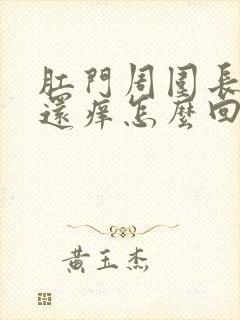 肛門周圍長
還痒怎麼回
黃玉杰